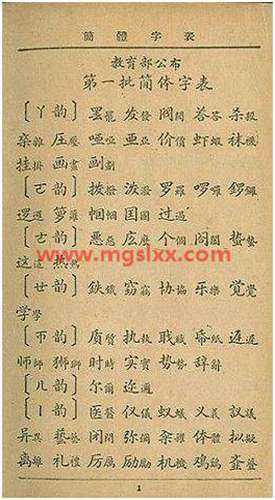 簡體字表
教育部公布
第一批简体字表
〔ㄚ韵〕 罢罷 发發 阀閥 荅答 杀殺
杂雜 压壓 哑啞 亚亞 价價 虾蝦 袜襪
挂掛 画畫 劃
〔ㄛ韵〕 拨撥 泼潑 罗羅 啰囉 锣鑼
逻邏 箩籮 帼幗 国國 过過
〔ㄜ韵〕 恶惡 庅麽 个個 阁閣 蛰蟄
www.mgslxx.com
这這 热熱
〔ㄝ韵〕 鉄鐵 窃竊 协協 乐樂 觉覺
学學
〔ㄭ韵〕 质質 执執 职職 帋紙 迟遲
师師 狮獅 时時 实實 势勢 辞辭
〔ㄦ韵〕 尔爾 迩邇
〔ㄧ韵〕 医醫 仪儀 蚁蟻 义義 议議
异異 艺藝 闭閉 弥彌 籴糴 体體 拟擬
离離 礼禮 厉厲 励勵 机機 鸡鷄
1